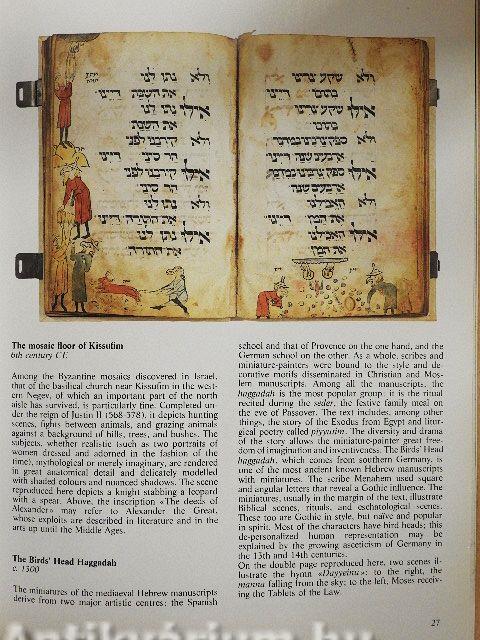 ולא שקע צרינו
בתוכו דיינו
אילו שקע צרינו
בתוכו
ולא ספק צרכינו במדבר
ארבעים שנה דיינו
אילו ספק צרכינו במדבר
ארבעים שנה
ולא האכילנו
את המן דיינו
אילו האכילנו
את המן
ולא נתן לנו
את השבת דיינו
אילו נתן לנו
את השבת
ולא קירבנו לפני
הר סיני דיינו
אילו קירבנו לפני
הר סיני
ולא נתן לנו
את התורה דיינו
אילו נתן לנו
את התורה
The mosaic floor of Kissufim
6th century C.E.
Among the Byzantine mosaics discovered in Israel,
that of the basilical church near Kissufim in the west-
ern Negev, of which an important part of the north
aisle has survived, is particularly fine. Completed un-
der the reign of Justin II (568-578), it depicts hunting
scenes, fights between animals, and grazing animals
against a background of hills, trees, and bushes. The
subjects, whether realistic (such as two portraits of
women dressed and adorned in the fashion of the
time), mythological or merely imaginary, are rendered
in great anatomical detail and delicately modelled
with shaded colours and nuanced shadows. The scene
reproduced here depicts a knight stabbing a leopard
with a spear. Above, the inscription «The deeds of
Alexander» may refer to Alexander the Great,
whose exploits are described in literature and in the
arts up until the Middle Ages.
The Birds' Head Haggadah
c. 1300
The miniatures of the mediaeval Hebrew manuscripts
derive from two major artistic centres: the Spanish
school and that of Provence on the one hand, and the
German school on the other. As a whole, scribes and
miniature-painters were bound to the style and de-
corative motifs disseminated in Christian and Mos-
lem manuscripts. Among all the manuscripts, the
haggadah is the most popular group: it is the ritual
recited during the seder, the festive family meal on
the eve of Passover. The text includes, among other
things, the story of the Exodus from Egypt and litur-
gical poetry called piyyutim. The diversity and drama
of the story allows the miniature-painter great free-
dom of imagination and inventiveness. The Birds' Head
haggadah, which comes from southern Germany, is
one of the most ancient known Hebrew manuscripts
with miniatures. The scribe Menahem used square
and angular letters that reveal a Gothic influence. The
miniatures, usually in the margin of the text, illustrate
Biblical scenes, rituals, and eschatological scenes.
These too are Gothic in style, but naïve and popular
in spirit. Most of the characters have bird heads; this
de-personalized human representation may be
explained by the growing asceticism of Germany in
the 13th and 14th centuries.
On the double page reproduced here, two scenes il-
lustrate the hymn «Dayyeinu»: to the right, the
manna falling from the sky; to the left, Moses receiv-
ing the Tablets of the Law.
27